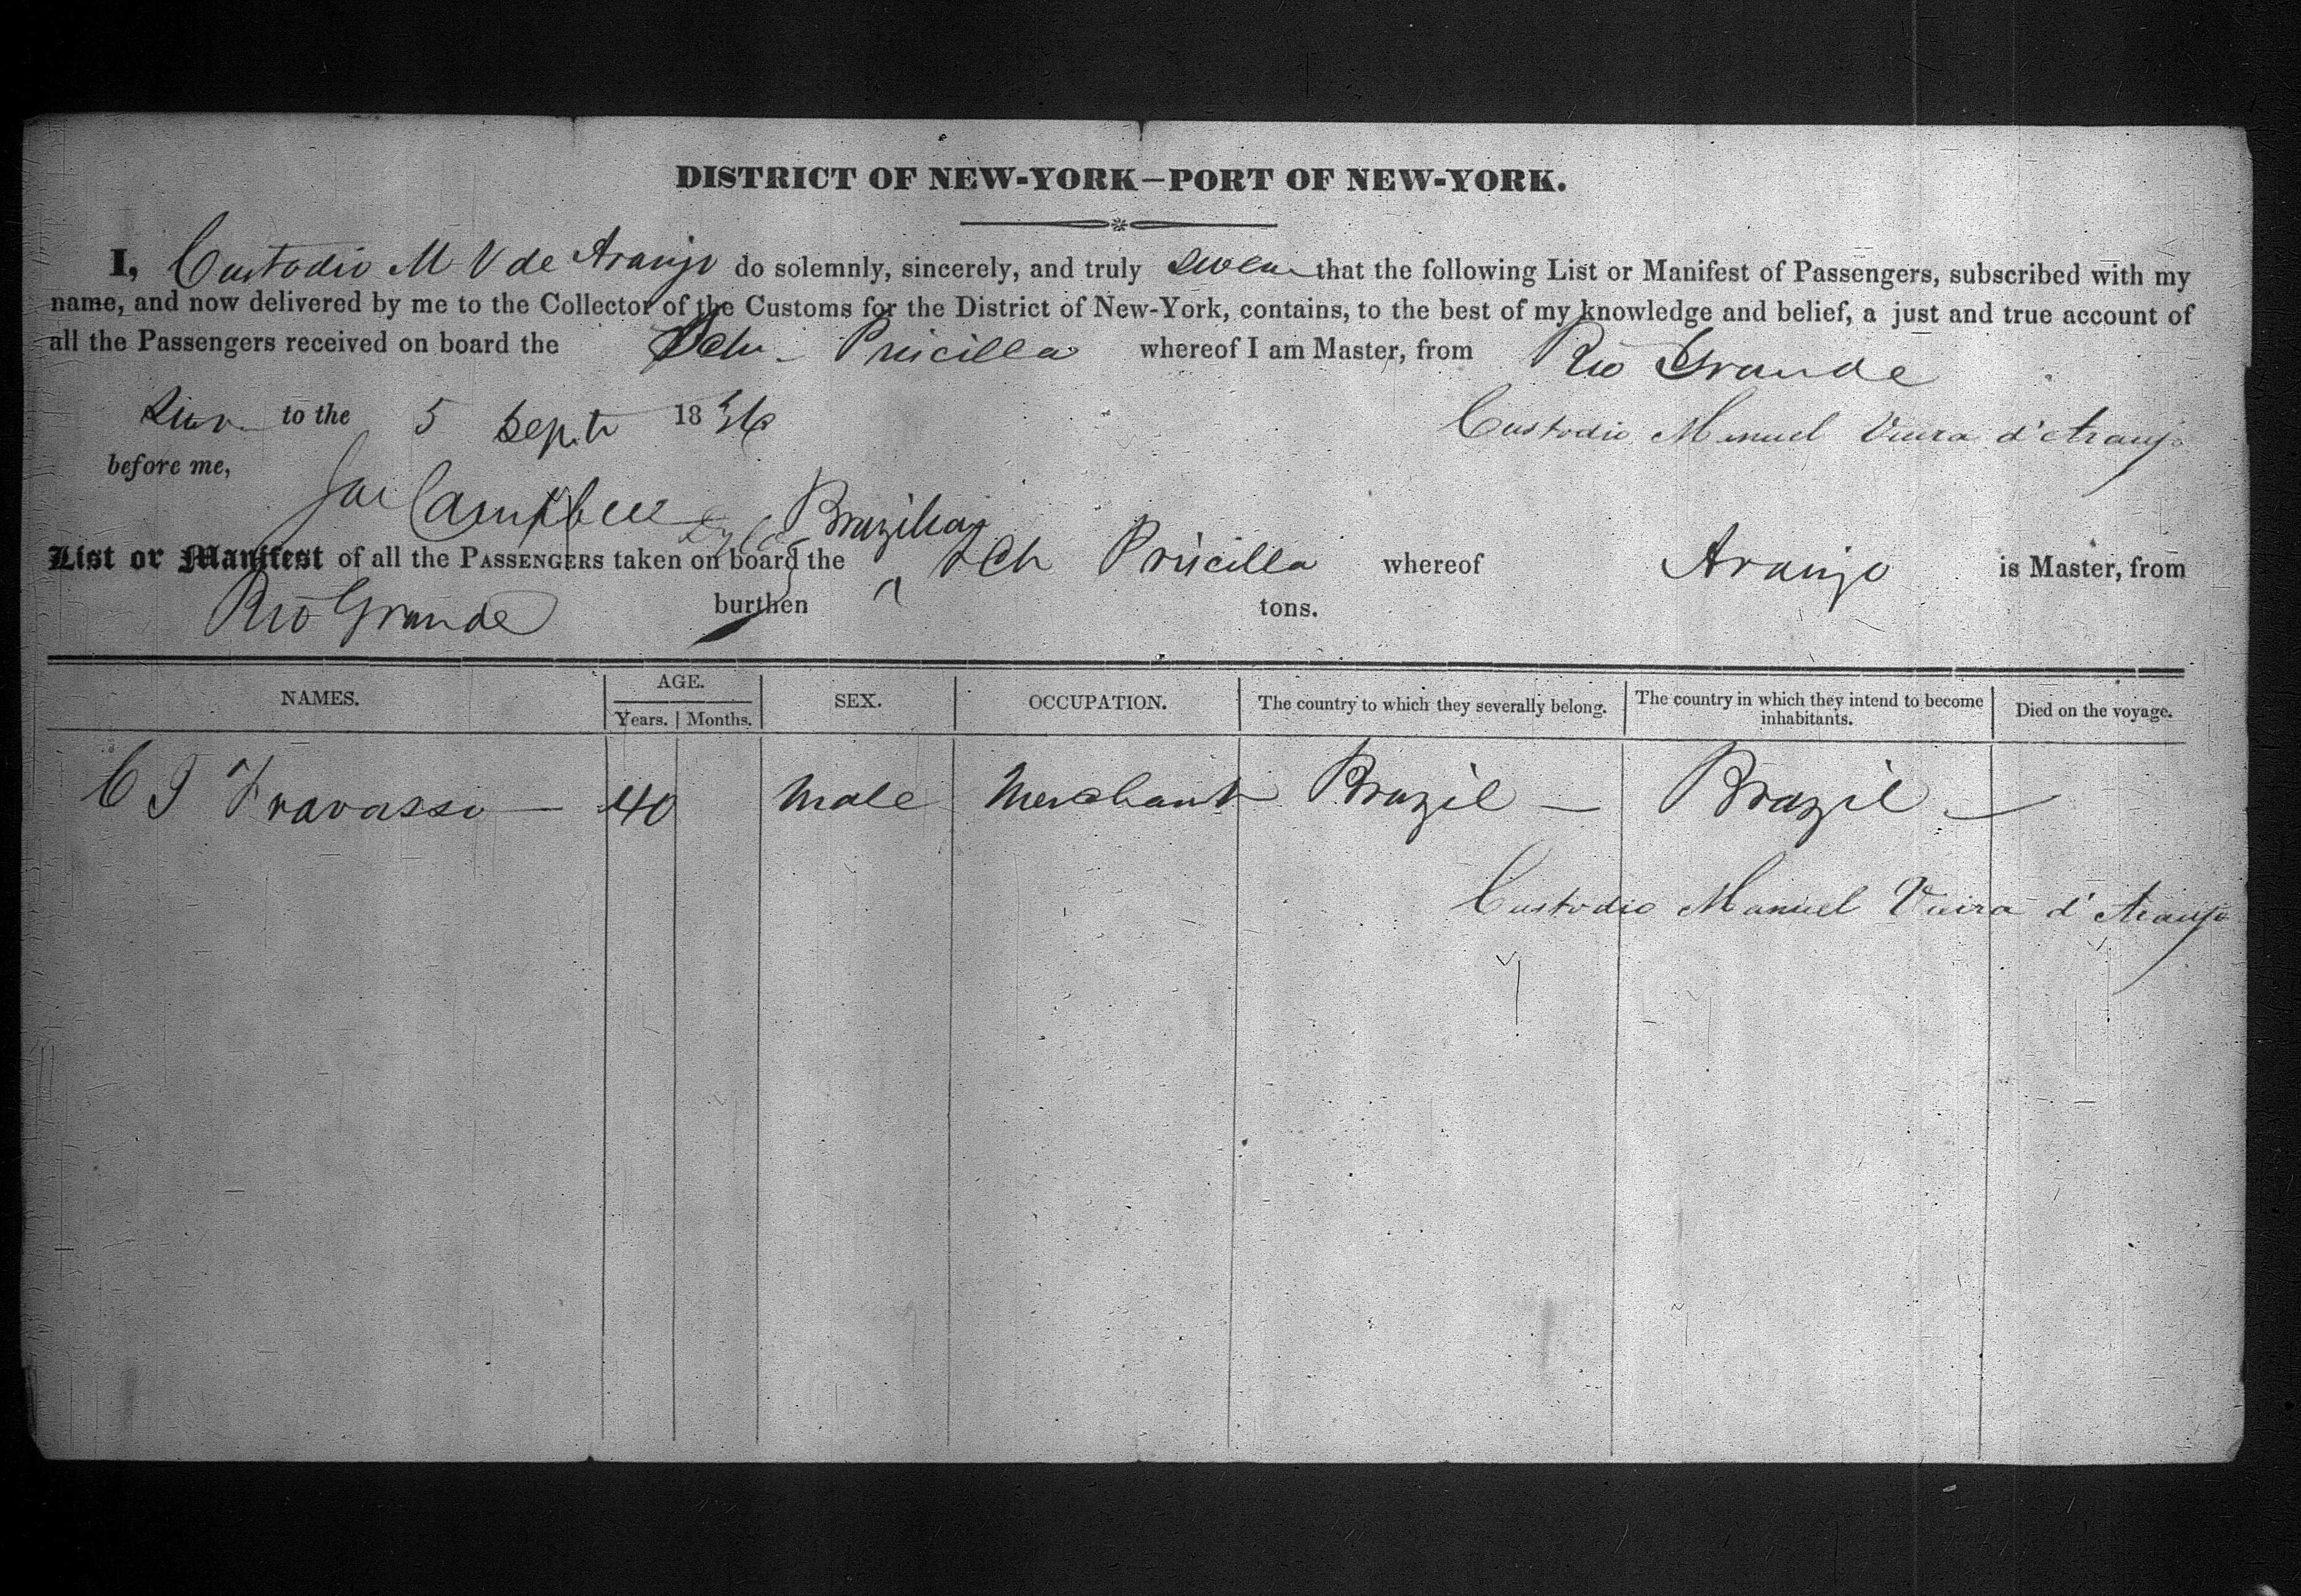 DISTRICT OF NEW-YORK—PORT OF NEW-YORK.
I, Custodio M V de Araujo do solemnly, sincerely, and truly swear that the following List or Manifest of Passengers, subscribed with my
name, and now delivered by me to the Collector of the Customs for the District of New-York, contains, to the best of my knowledge and belief, a just and true account of
all the Passengers received on board the Schr Priscilla whereof I am Master, from Rio Grande
to the 5 Sept 18
Custodio Manuel Vieira d'Araujo
before me,
Campbell
Brazilian
List or Manifest of all the PASSENGERS taken on board the Sch Priscilla whereof Araujo is Master, from
Rio Grande burthen tons.
NAMES. AGE. SEX. OCCUPATION. The country to which they severally belong. The country in which they intend to become inhabitants. Died on the voyage.
Years. Months.
C J Travasso 40 Male Merchant Brazil — Brazil —
Custodio Manuel Vieira d'Araujo